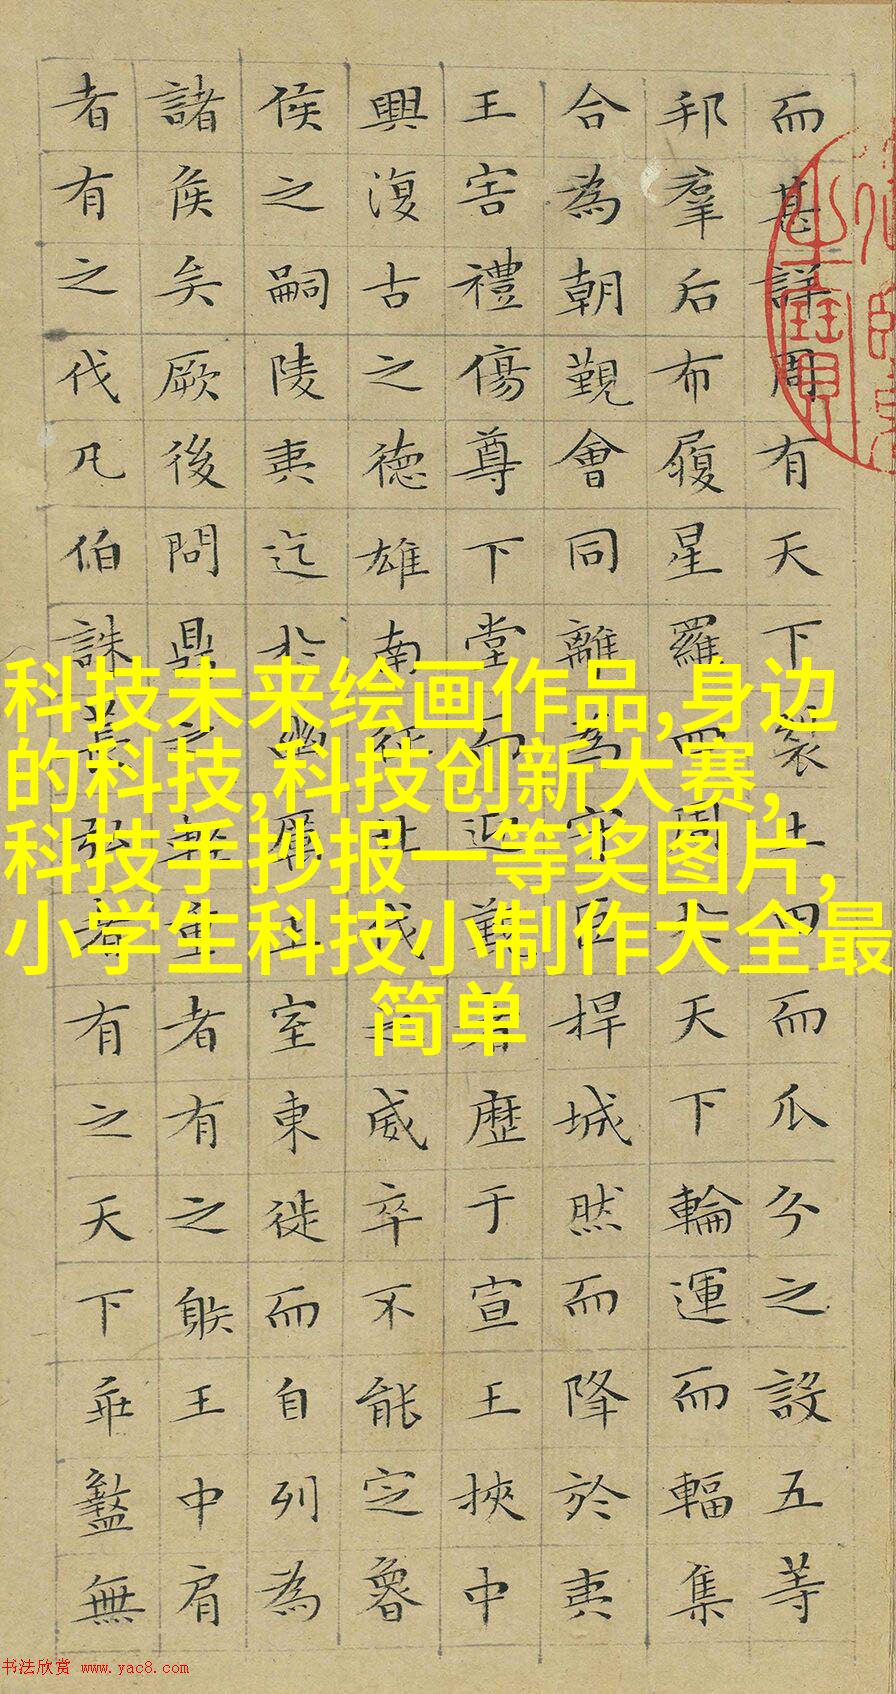 而甚詳周有天下裂土田而瓜分之設五等
邦羣后布履星羅四周于天下輪運而輻集
合為朝覲會同離為守臣捍城然而降於夷
王害禮傷尊下堂而迎覲者歷于宣王挾中
興復古之德雄南征北伐之威卒不能定魯
侯之嗣陵夷迄於幽厲王室東徙而自列為
諸侯矣厥後問鼎之輕重者有之䠶王中肩
者有之伐凡伯誅萇弘者有之天下乖盭無
科技未来绘画作品,身边
的科技,科技创新大赛,
科技手抄报一等奖图片,
小学生科技小制作大全最
简单
书法欣赏 www.yac8.com